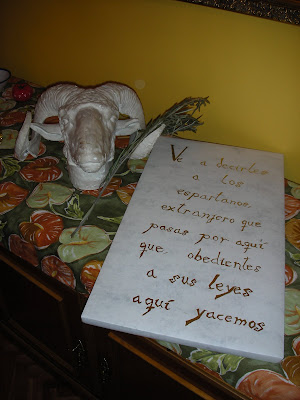 Ve a decirles
a los
espartanos,
extranjero que
pasas por aquí
que obedientes
a sus leyes
aquí yacemos